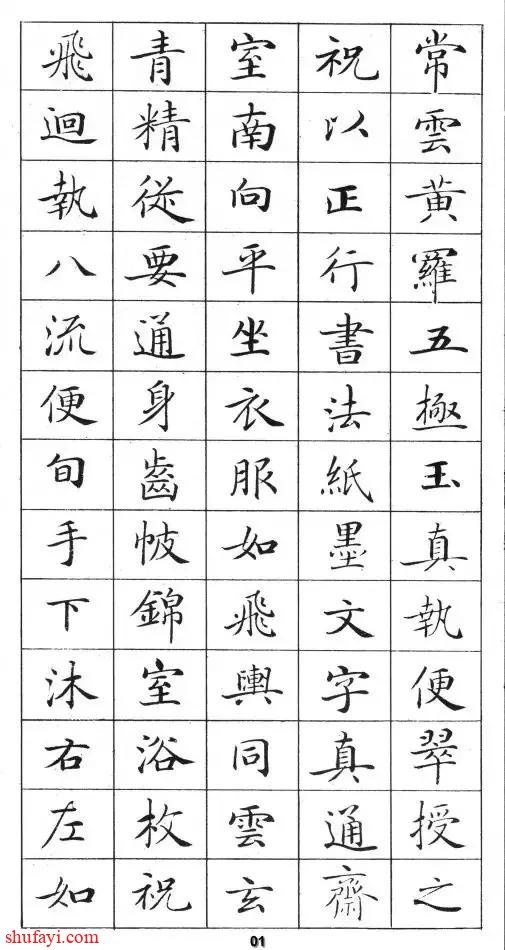 常雲黄羅五極玉真執便翠授之
祝以正行書法紙墨文字真通齋
室南向平坐衣服如飛輿同雲玄
青精從要通身齒帔錦室浴枚祝
飛迴執八流便旬手下沐右左如
shufayi.com
01